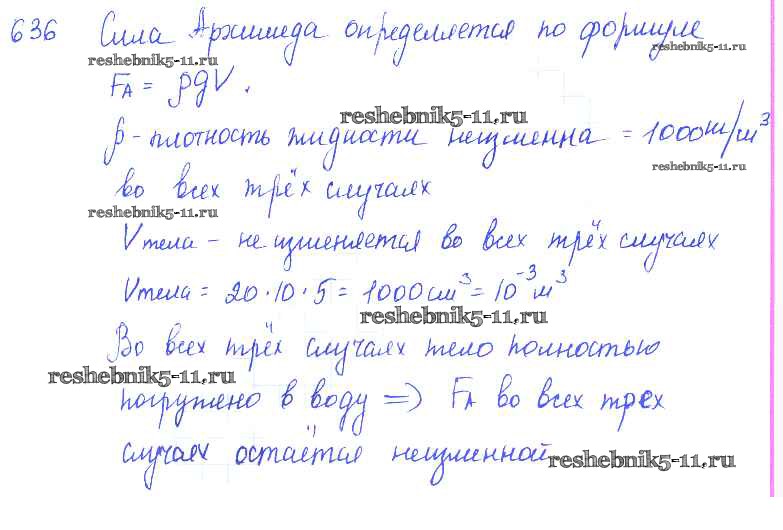 636 Сила Архимеда определяется по формуле
reshebnik5-11.ru reshebnik5-11.ru
FA = ρgV.
reshebnik5-11.ru
ρ - плотность жидкости неизменна = 1000 кг/м³
reshebnik5-11.ru
во всех трёх случаях
reshebnik5-11.ru
Vтела - не изменяется во всех трёх случаях
Vтела = 20·10·5 = 1000 см³ = 10⁻³ м³
reshebnik5-11.ru
Во всех трёх случаях тело полностью
reshebnik5-11.ru
погружено в воду => FA во всех трех
случаях остаётся неизменной
reshebnik5-11.ru